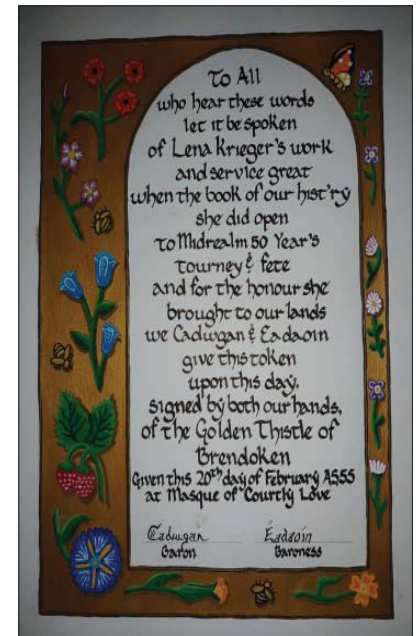 To All
who hear these words
let it be spoken
of Lena Krieger's work
and service great
when the book of our hist'ry
she did open
To Midrealm 50 Year's
Tourney & fete
and for the honour she
brought to our lands
we Cadwgan & Eadaoin
give this token
upon this day,
signed by both our hands,
of the Golden Thistle of
Brendoken
Given this 20th day of February AS55
at Masque of Courtly Love
Cadwgan Éadaoín
Baron Baroness